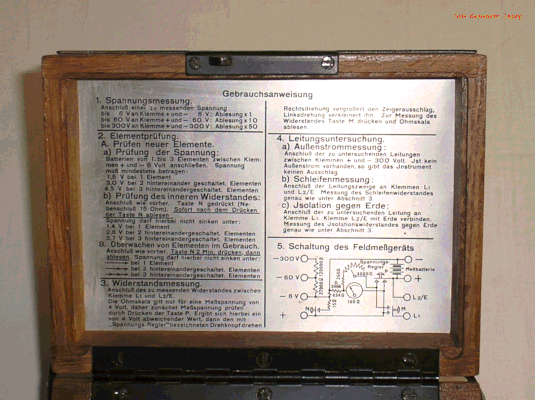 Gebrauchsanweisung
1. Spannungsmessung.
Anschluß einer zu messenden Spannung
bis 6 V an Klemme + und - 6 V: Ablesung x 1
bis 60 V an Klemme + und - 60 V: Ablesung x 10
bis 300 V an Klemme + und - 300 V: Ablesung x 50
2. Elementprüfung.
A. Prüfen neuer Elemente.
a) Prüfung der Spannung:
Batterien von 1 bis 3 Elementen zwischen Klem-
men + und - 6 Volt anschließen. Spannung
muß mindestens betragen:
1,5 V bei 1 Element
3,0 V bei 2 hintereinander geschaltet. Elementen
4,5 V bei 3 hintereinander geschaltet. Elementen
b) Prüfung des inneren Widerstandes:
Anschluß wie vorher. Taste N gedrückt (Ne-
benschluß 15 Ohm). Sofort nach dem Drücken
der Taste N ablesen.
Spannung darf hierbei nicht sinken unter:
1,4 V bei 1 Element
2,6 V bei 2 hintereinandergeschaltet. Elementen
3,7 V bei 3 hintereinandergeschaltet. Elementen
B. Überwachen von Elementen im Gebrauch.
Anschluß wie vorher. Taste N 2 Min. drücken, dann
ablesen. Spannung darf hierbei nicht sinken unter:
bei 1 Element
bei 2 hintereinandergeschaltet. Elementen
bei 3 hintereinandergeschaltet. Elementen
3. Widerstandsmessung.
Anschluß des zu messenden Widerstandes zwischen
Klemme L1 und L2/E.
Die Ohmskala gilt nur für eine Meßspannung von
4 Volt, daher zunächst Meßspannung prüfen
durch Drücken der Taste P. Ergibt sich hierbei ein
von 4 Volt abweichender Wert, dann den mit
"Spannungs Regler" bezeichneten Drehknopf drehen
Rechtsdrehung vergrößert den Zeigerausschlag,
Linksdrehung verkleinert ihn. Zur Messung des
Widerstandes Taste M drücken und Ohmskala
ablesen.
4. Leitungsuntersuchung.
a) Außenstrommessung:
Anschluß der zu untersuchenden Leitungen
zwischen Klemmen + und - 300 Volt. Ist kein
Außenstrom vorhanden, so gibt das Instrument
keinen Ausschlag.
b) Schleifenmessung:
Anschluß der Leitungszweige an Klemmen L1
und L2/E. Messung des Schleifenwiderstandes
wie unter Abschnitt 3.
c) Jsolation gegen Erde:
Anschluß der zu untersuchenden Leitung an
Klemme L1. Klemme L2/E mit Erde verbinden.
Messung des Isolationswiderstandes gegen Erde
genau wie unter Abschnitt 3.
5. Schaltung des Feldmeßgeräts
-300V
-60V
-6V
+
Spannungs
Regler
Meßbatterie
+
L2/E
L1
N
P
M